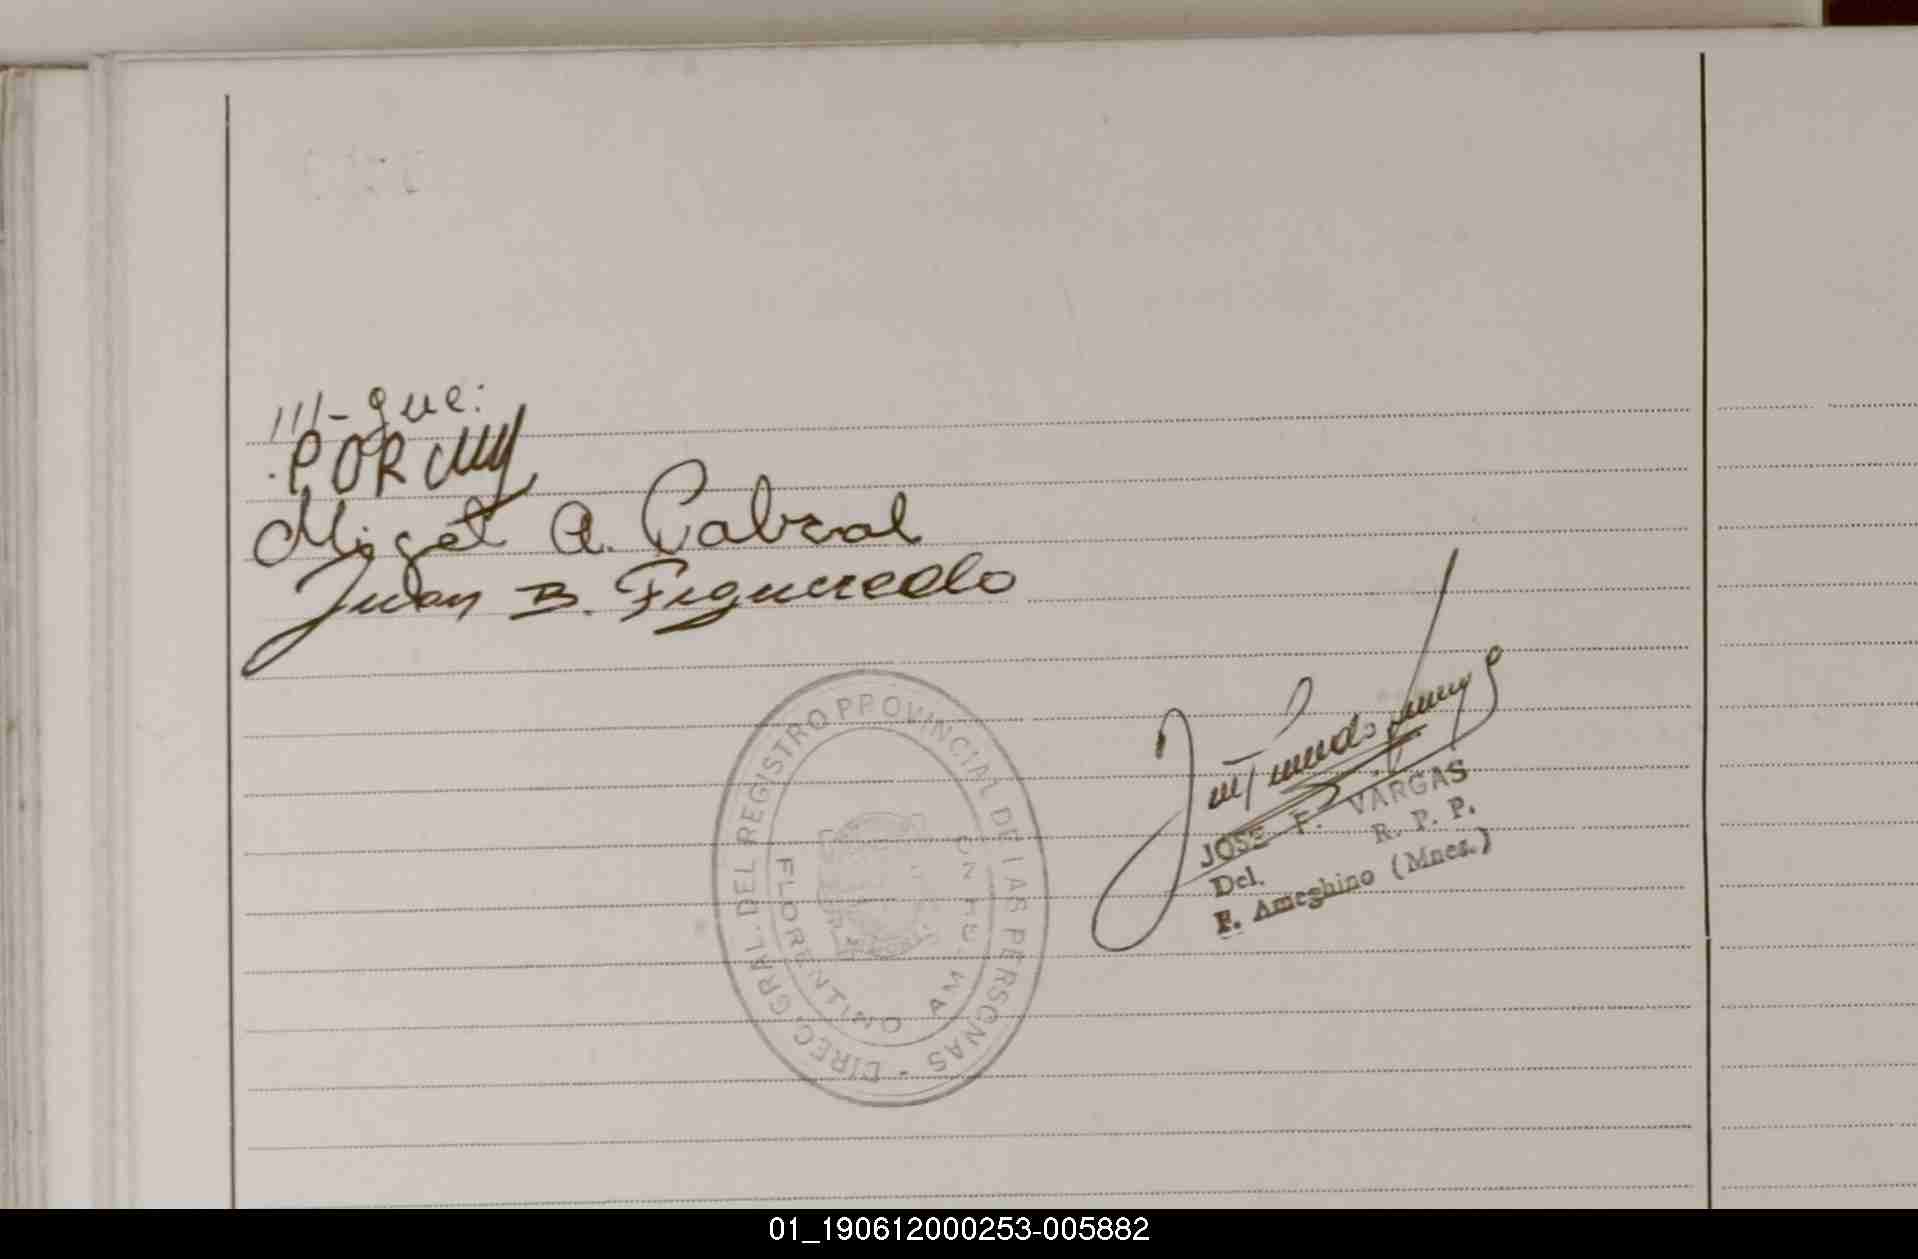 ///-que:
POR
Migel A. Cabral
Juan B. Figueredo
DIREC. GRAL. DEL REGISTRO PROVINCIAL DE LAS PERSONAS
FLORENTINO AM
JOSE F. VARGAS
Del. R. P. P.
F. Ameghino (Mnes.)
01_190612000253-005882